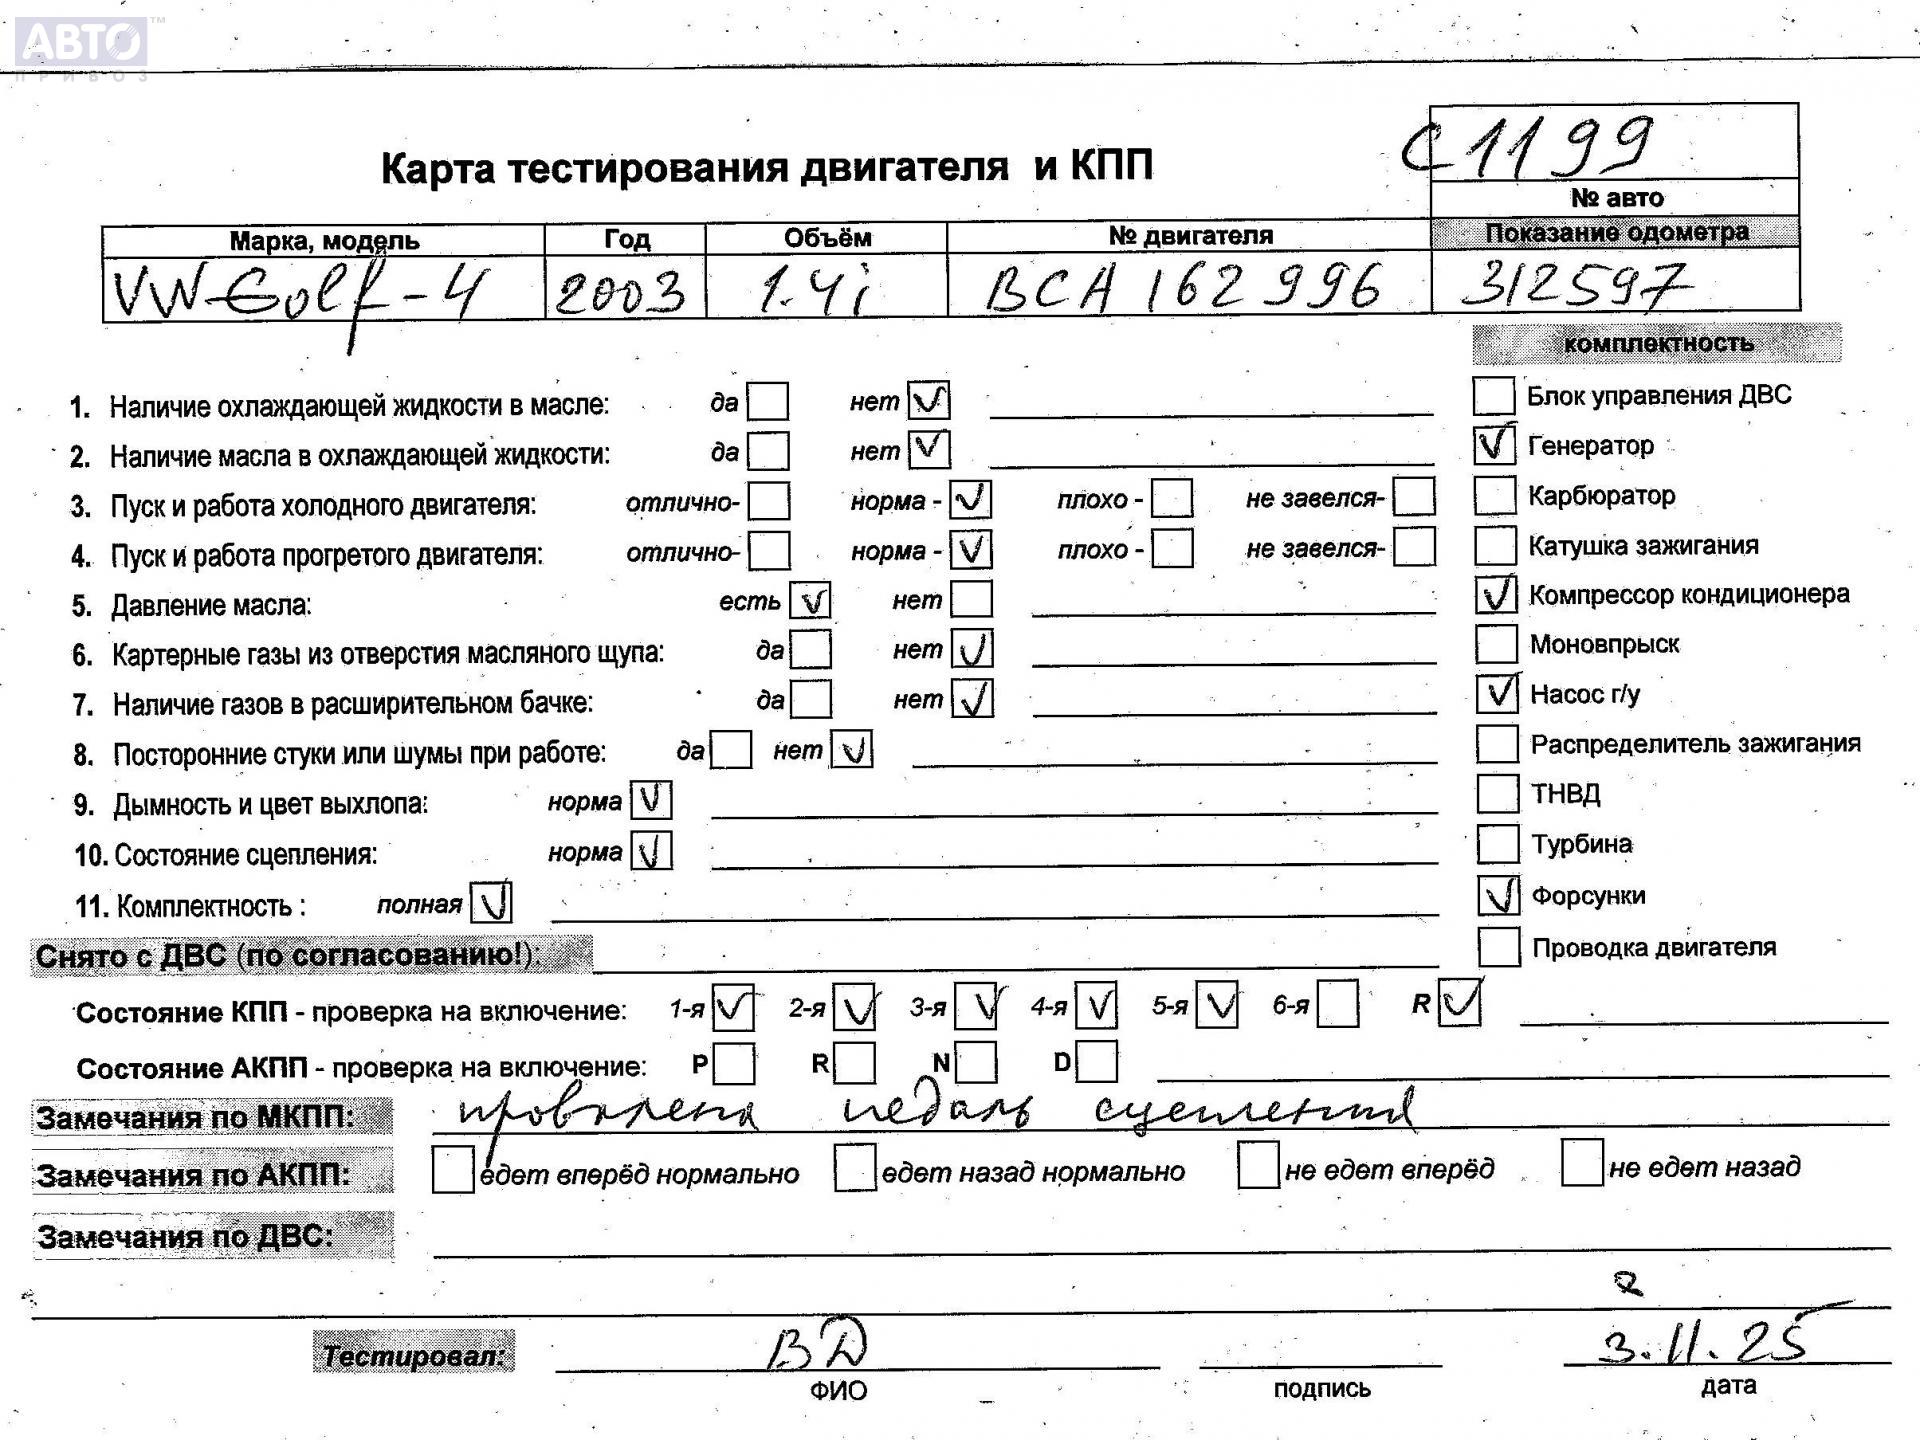 АВТО™
ПРИВОЗ
С1199
Карта тестирования двигателя и КПП
№ авто
Марка, модель Год Объём № двигателя Показание одометра
VW-Golf-4 2003 1.4i BCA 162996 312597
комплектность
1. Наличие охлаждающей жидкости в масле: да нет ✓
Блок управления ДВС
2. Наличие масла в охлаждающей жидкости: да нет ✓
✓ Генератор
3. Пуск и работа холодного двигателя: отлично- норма - ✓ плохо - не завелся-
Карбюратор
4. Пуск и работа прогретого двигателя: отлично- норма - ✓ плохо - не завелся-
Катушка зажигания
5. Давление масла: есть ✓ нет
✓ Компрессор кондиционера
6. Картерные газы из отверстия масляного щупа: да нет ✓
Моновпрыск
7. Наличие газов в расширительном бачке: да нет ✓
✓ Насос г/у
8. Посторонние стуки или шумы при работе: да нет ✓
Распределитель зажигания
9. Дымность и цвет выхлопа: норма ✓
ТНВД
10. Состояние сцепления: норма ✓
Турбина
11. Комплектность : полная ✓
✓ Форсунки
Снято с ДВС (по согласованию!):
Проводка двигателя
Состояние КПП - проверка на включение: 1-я ✓ 2-я ✓ 3-я ✓ 4-я ✓ 5-я ✓ 6-я R ✓
Состояние АКПП - проверка на включение: P R N D
Замечания по МКПП: провалена педаль сцепления
Замечания по АКПП: едет вперёд нормально едет назад нормально не едет вперёд не едет назад
Замечания по ДВС:
Тестировал: ВД 3.11.25
ФИО подпись дата